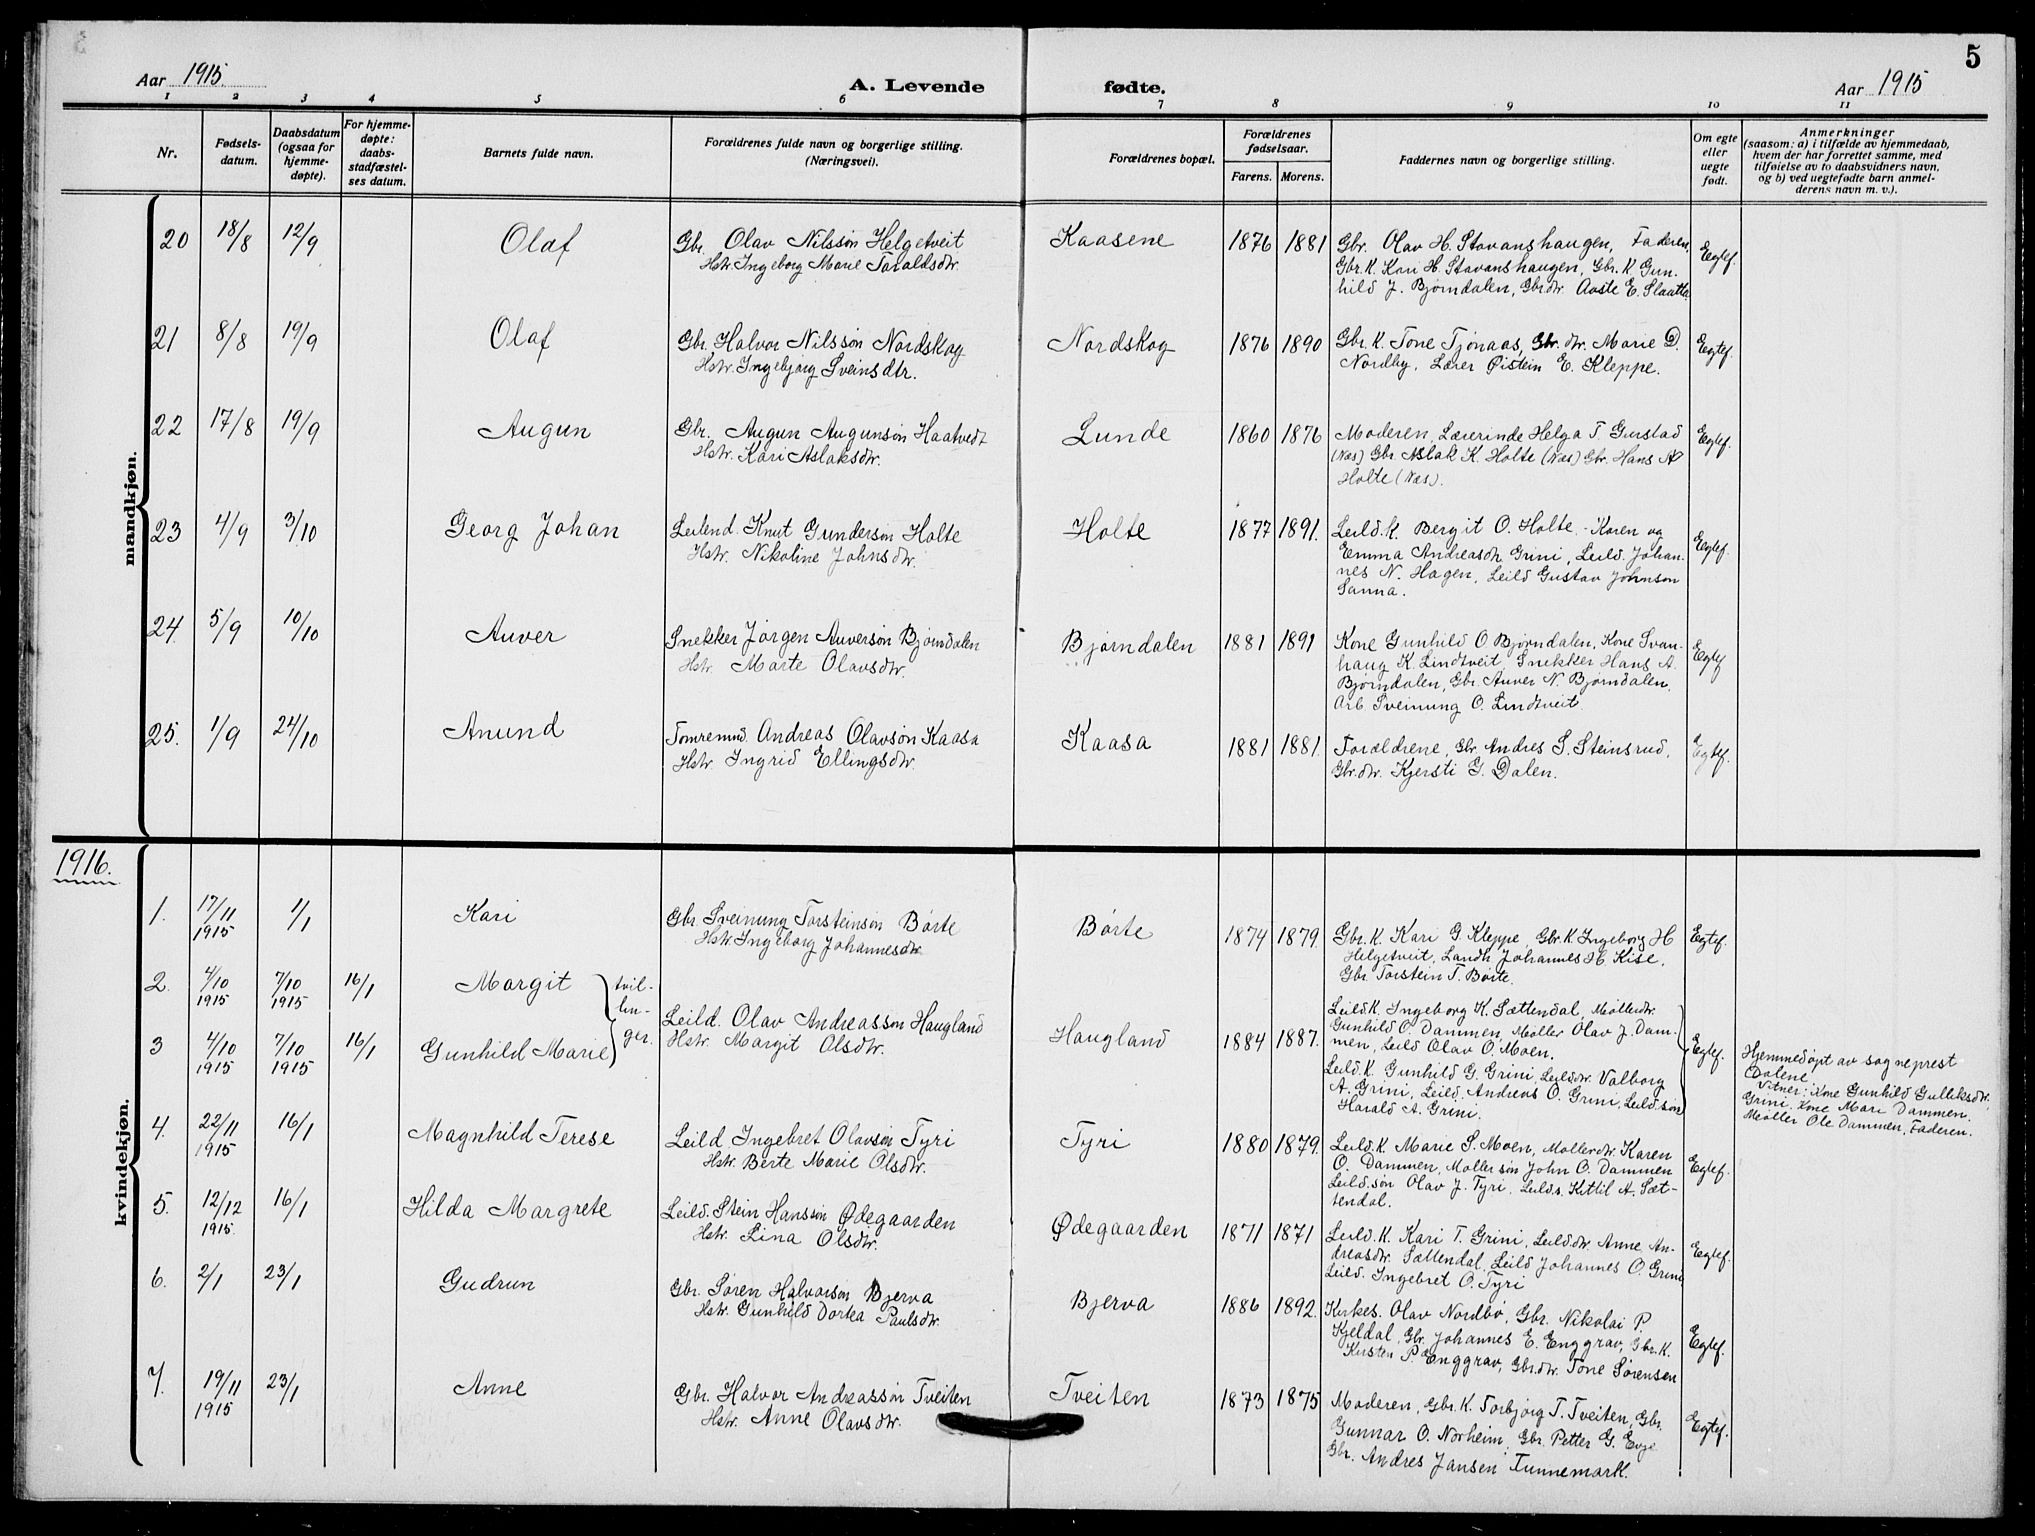 Aar 1915. A. Levende fødte. Aar 1915 5
1 2 3 4 5 6 7 8 9 10 11
Nr. Fødsels-datum. Daabsdatum (ogsaa for hjemme-døpte). For hjemme-døpte: daabs-stadfæstel-ses datum. Barnets fulde navn. Forældrenes fulde navn og borgerlige stilling. (Næringsvei). Forældrenes bopæl. Forældrenes fødselsaar. Farens. Morens. Faddernes navn og borgerlige stilling. Om egte eller uegte født. Anmerkninger (saasom: a) i tilfælde av hjemmedaab, hvem der har forrettet samme, med tilføielse av to daabsvidners navn, og b) ved uegtefødte barn anmel-derens navn m. v.).
mandkjøn.
20 18/8 12/9 Olaf Gbr. Olav Nilssøn Helgetveit Kaasene 1876 1881 Gbr. Olav H. Stavanshaugen, Faderen,
Hstr. Ingeborg Marie Taraldsdtr. Gbr. K. Kari H. Stavanshaugen, Gbr. K Gun- Egtef.
hild J. Bjørndalen, Gbr.dtr. Aaste E. Slaatta
21 8/8 19/9 Olaf Gbr. Halvor Nilssøn Nordskog Nordskog 1876 1890 Gbr. K. Tone Tjønaas, Gbr. dtr. Marie D. Egtef.
Hstr. Ingebjørg Sveinsdtr. Nordby, Lærer Øistein E. Kleppe.
22 17/8 19/9 Augun Gbr. Augun Augunsøn Haatvedt Lunde 1860 1876 Moderen, Lærerinde Helga T. Gurstad Egtef.
Hstr. Kari Aslaksdtr. (Næs) Gbr. Aslak K. Holte (Næs) Gbr. Hans A
Holte (Næs).
23 4/9 3/10 Georg Johan Leilend. Knut Gundersøn Holte Holte 1877 1891. Leild. K. Bergit O. Holte - Karen og Egtef.
Hstr. Nikoline Johnsdtr. Emma Andreasdtr Grini, Leild. Johan-
nes N. Hagen, Leild Gustav Johnson
Sanna.
24. 5/9 10/10 Auver Snekker Jørgen Auversøn Bjørndalen Bjørndalen 1881 1891 Kone Gunhild O Bjørndalen, Kone Svan- Egtef
Hstr. Marte Olavsdtr. haug K. Lindtveit, Snekker Hans A.
Bjørndalen, Gbr. Auver N. Bjørndalen.
Arb. Sveinung O. Lindtveit.
25. 1/9 24/10 Anund Tømremnd. Andreas Olavsøn Kaasa Kaasa 1881 1881. Forældrene, Gbr Andres S. Steinsrud, Egtef.
Hstr Ingrid Ellingsdtr. Gbr.dtr. Kjersti G. Dalen.
1916.
kvindekjøn.
1. 17/11 1915 1/1 Kari Gbr Sveinung Torsteinsøn Børte Børte 1874 1879. Gbr. K. Kari G. Kleppe, Gbr. K. Ingeborg H Egtef.
Hstr. Ingeborg Johannesdtr Helgetveit, Landh. Johannes H. Kise,
Gbr Torstein T. Børte.
2. 4/10 1915 7/10 1915 16/1 Margit tvil-lin-ger. Leild. Olav Andreassøn Haugland Haugland 1884 1887. Leild. K. Ingeborg K. Sættendal, Møllerdtr. Egtef.
Hstr. Margit Olsdtr. Gunhild O. Dammen, Møller Olav J. Dam-
men, Leild Olav O. Moen.
3 4/10 1915 7/10 1915 16/1 Gunhild Marie Leild. K. Gunhild G. Grini, Leild.dtr. Valborg
A. Grini, Leild. Andreas O. Grini, Leild.søn
Harald A. Grini.
Hjemmedøpt av sogneprest
Dalene.
Vitner: Kone Gunhild Gulliksdtr.
Grini, Kone Mari Dammen.
Møller Ole Dammen, Faderen.
4. 22/11 1915 16/1 Magnhild Terese Leild Ingebret Olavsøn Tyri Tyri 1880 1879. Leild. K. Marie S. Moen, Møllerdtr. Karen Egtef.
Hstr. Berte Marie Olsdtr. O. Dammen, Møllersøn John O. Dammen
Leild.søn Olav J. Tyri, Leilds. Kittil A. Sæt-
tendal.
5. 12/12 1915. 16/1 Hilda Margrete Leild. Stein Hanssøn Ødegaarden Ødegaarden 1871 1871 Leild. K. Kari T. Grini, Leild.dtr. Anne An- Egtef.
Hstr. Lina Olsdtr. dreasdtr. Sættendal, Leild Johannes O. Grini
Leild. Ingebret O. Tyri
6. 2/1 23/1 Gudrun Gbr. Søren Halvorsøn Bjerva Bjerva 1886 1892. Kirkes. Olav Nordbø, Gbr. Nikolai P. Egtef.
Hstr. Gunhild Dortea Paulsdtr. Kjeldal, Gbr. Johannes E. Enggrav, Gbr. K.
Kirsten P. Enggrav, Gbr.dtr. Tone Sørensen
7. 19/11 1915 23/1 Anne Gbr. Halvor Andreassøn Tveiten Tveiten 1873 1875 Moderen, Gbr. K. Torbjørg T. Tveiten, Gbr. Egtef.
Hstr. Anne Olavsdtr. Gunnar O. Norheim, Gbr. Petter G. Evje
Gbr. Andres Jansen Tunnemark.